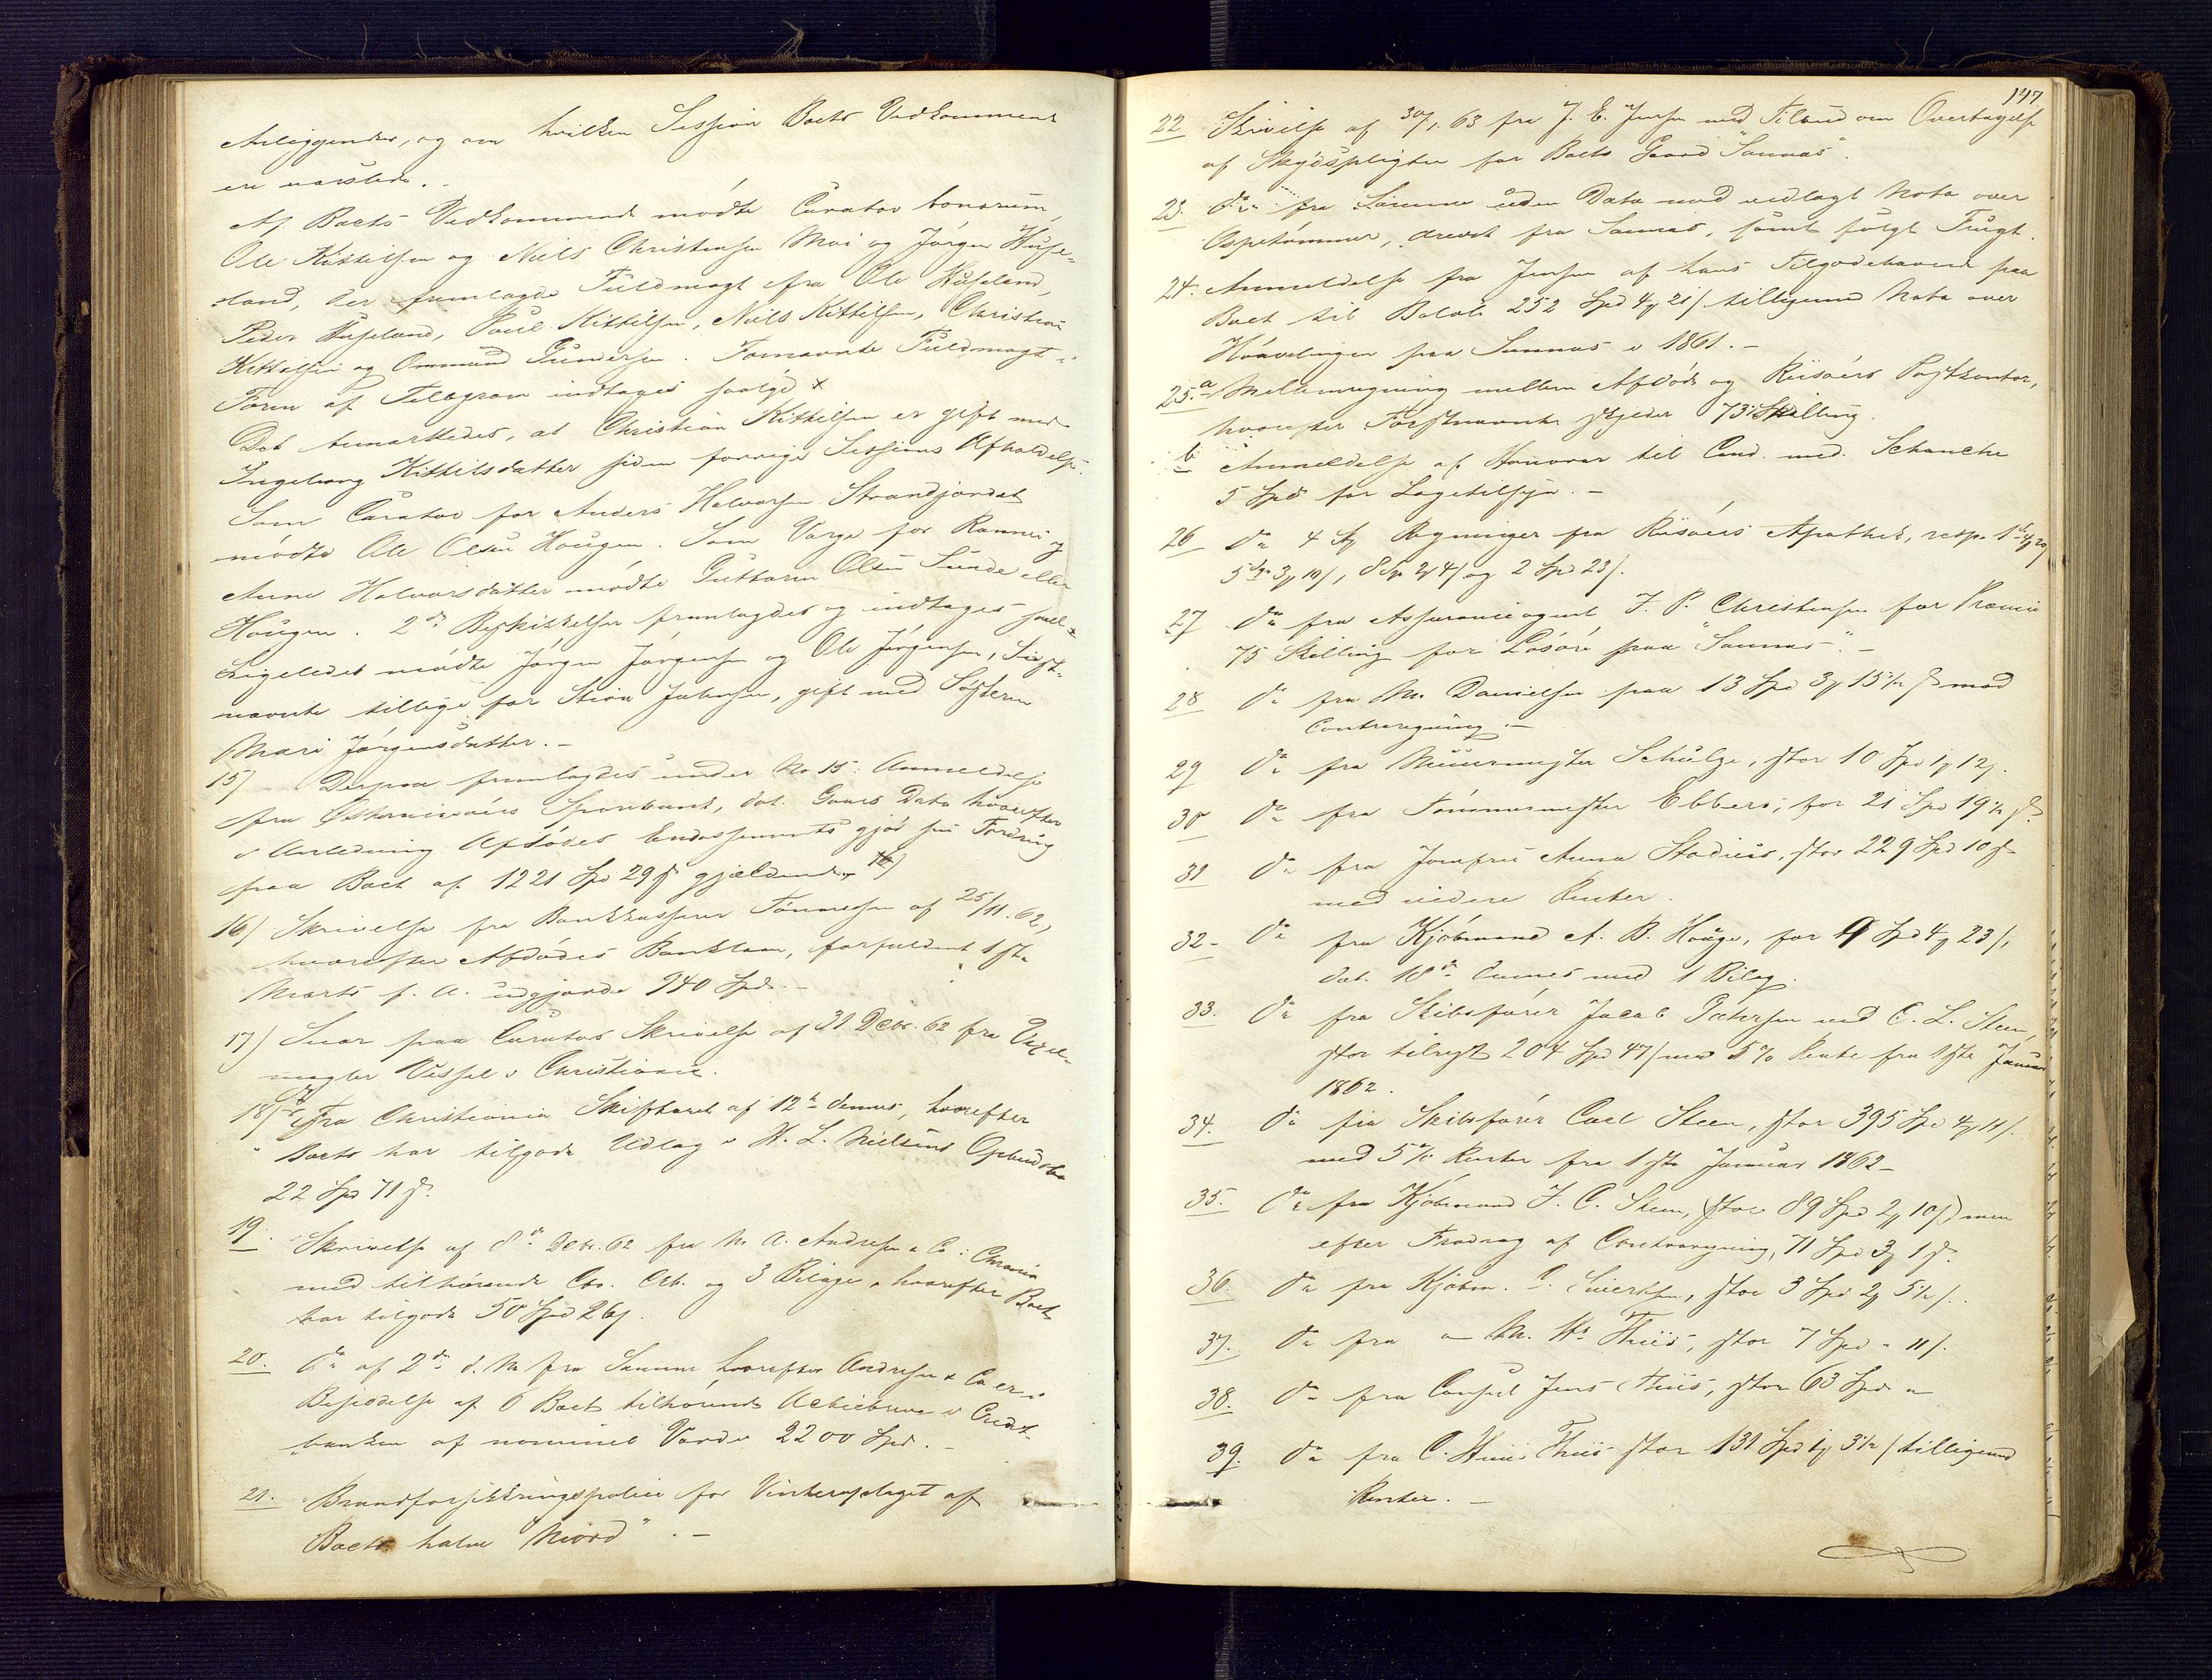 Anliggender, og om hvilken Session Boets Vedkommende
ere varslede. -
Af Boets Vedkommende mødte Curator bonorum,
Ole Kittilsen og Niels Christensen Moi og Jørgen Huse-
land, der fremlagde Fuldmagt fra Ole Huseland,
Peder Huseland, Poul Kittilsen, Niels Kittilsen, Christian
Kittilsen og Ommund Gundersen. Fornævnte Fuldmagt i
Form af Telegram indtages saalyd. x
Det bemærkedes, at Christian Kittilsen er gift med
Ingeborg Kittilsdatter siden forrige Sessions Afholdelse.
Som Curator for Anders Halvorsen Strandjordet
mødte Ole Olsen Hougen. Som Værge for Rannei og
Anne Halvorsdatter mødte Guttorm Olsen Sunde eller
Hougen. 2de Beskikkelser fremlagdes og indtages saal x
Ligeledes mødte Jørgen Jørgensen og Ole Jørgensen, Sidst-
nævnte tillige for Stian Jakobsen, gift med Søsteren
Mari Jørgensdatter. -
15) Derpaa fremlagdes under No 15: Anmeldelse
fra Østerriisøers Sparebank, dat. Gaars Dato hvorefter
i Anledning Afdødes Endossements gjør sin Fordring
paa Boet af 1221 Spd 29 s gjældende. 16)
16) Skrivelse fra Bankkasserer Tønnesen af 25/11. 62,
hvorefter Afdødes Banklaan, forfaldent 1ste
Marts f. A. udgjorde 940 Spd. -
17) Svar paa Curators Skrivelse af 31 Decbr. 62 fra Vexel-
mægler Vessel i Christiania.
18) Do fra Christiania Skifteret af 12te dennes, hvorefter
Boets har tilgode Udlag i H. L. Nielsens Opbudsbo
22 Spd 71 s.
19. Skrivelse af 8de Decbr. 62 fra N. A. Andresen & Co i Chrania
med tilhørende Cto. Crt. og 3 Bilage, hvorefter Boet
har tilgode 50 Spd 26 s.
20. Do af 2den d. M. fra Samme hvorefter Andresen & Co er i
Besiddelse af 6 Boet tilhørende Actiebreve i Credit-
banken af nominel Værdi 2200 Spd. -
21. Brandforsikkringspolice for Vinteroplaget af
Boets halve "Niord". -
147
22 Skrivelse af 30/1. 63 fra J. E. Jensen med Tilbud om Overtagelse
af Skydspligten for Boets Gaard "Sannæs".
23. Do fra Samme uden Dato med vedlagt Nota over
Ospetømmer, drevet fra Sannæs, samt solgt Frugt.
24. Anmeldelse fra Jensen af hans Tilgodehavende paa
Boet til Beløb 252 Spd 4 21 s tilligemed Nota over
paa Sannæs i 1861. -
25.a Mellemregning mellem Afdøde og Riisøers Postkontor,
hvorefter Førstnævnte skylder 73 Skilling.
b Anmeldelse af Honorar til Cand. med. Schanche
5 Spd for Lægetilsyn. -
26 Do 4 Regninger fra Riisøers Apothek, resp. 1 4 20
5 3 10 s, 8 Sp 2 4 s og 2 Spd 23 s.
27 Do fra Assuranceagent J. P. Christensen for Præmie
75 Skilling for Løsøre paa "Sannæs". -
28 Do fra M. Danielsen paa 13 Spd 3 15 1/2 s mod
Contraregning. -
29 Do fra Muurmester Schulze, stor 10 Spd 1 12 s.
30 Do fra Tømmermester Ebbers, for 21 Spd 19 1/2 s.
31 Do fra Jomfru Anna Stadius, stor 229 Spd 10 s
med videre Renter.
32 - Do fra Kjøbmand A. B. Houge, for 9 Spd 4 23 s,
dat. 10de dennes med 1 Bilag.
33. Do fra Skibsfører Jacob Petersen ved C. L. Steen,
stor tilrest 204 Spd 47 s med 5% Rente fra 1ste Januar
1862.
34. Do fra Skibsfører Carl Steen, stor 395 Spd 4 11 s.
med 5% Renter fra 1ste Januar 1862 -
35. Do fra Kjøbmand J. C. Steen, stor 89 Spd 2 10 s men
efter Fradrag af Contraregning, 71 Spd 3 1 s.
36. Do fra Kjøbm. C. Sivertsen, stor 3 Spd 2 5 1/2 s.
37. Do fra - M. Ws Thiis, stor 7 Spd - 11 s.
38. Do fra Consul Jens Thiis, stor 63 Spd -
39. Do fra C. Thiis stor 131 Spd 1 3 1/2 s tilligemed
Renter. -